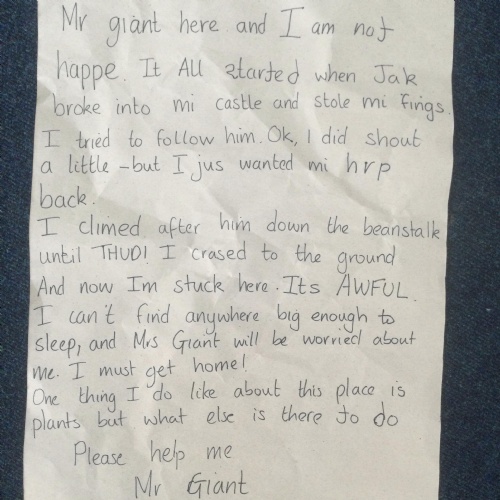 Mr giant here and I am not
happe. It All started when Jak
broke into mi castle and stole mi fings.
I tried to follow him. Ok, I did shout
a little - but I jus wanted mi hrp
back.
I climed after him down the beanstalk
until THUD! I crased to the ground
And now Im stuck here. Its AWFUL.
I can't find anywhere big enough to
sleep, and Mrs Giant will be worried about
me. I must get home!
One thing I do like about this place is
plants but what else is there to do
Please help me
Mr Giant